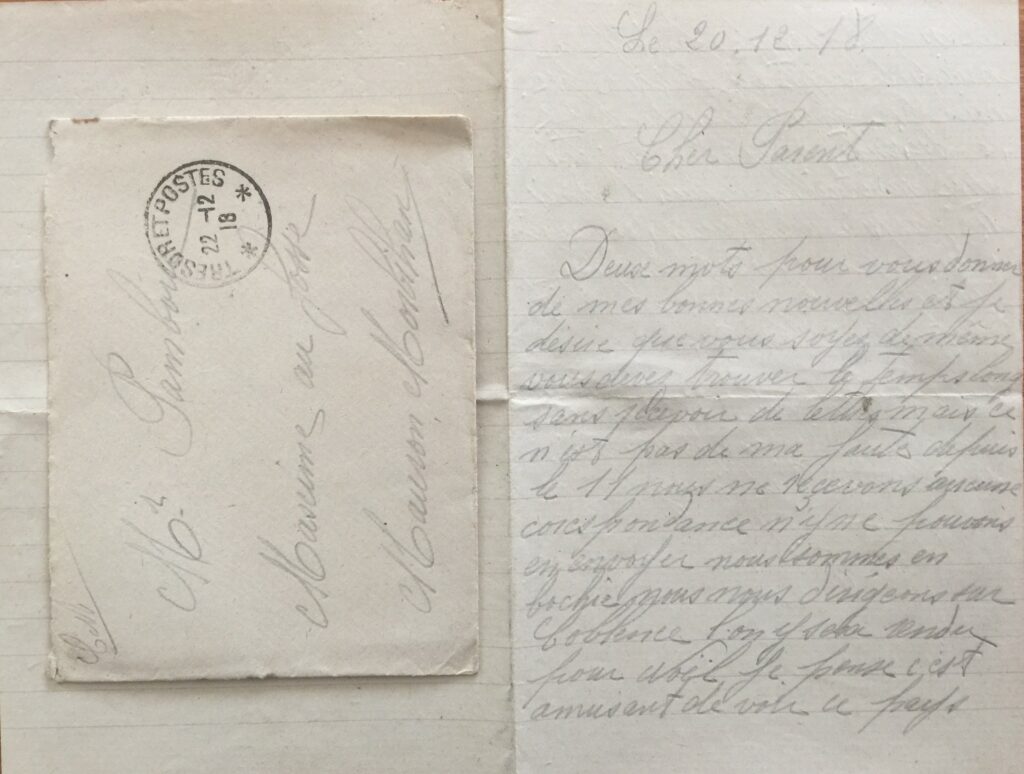 TRESOR ET POSTES
22 -12
18
Mr Pambour
Maxime au Josse
Mauron Morbihan
Le 20.12.18.
Cher Parent
Deux mots pour vous donner
de mes bonnes nouvelles et je
désire que vous soyez de même
vous devez trouver le temps long
sans recevoir de lettre mais ce
n'est pas de ma faute depuis
le 11 nous ne recevons aucune
correspondance n'y ne pouvons
en envoyer nous sommes en
bochie nous nous dirigeons sur
Coblence l'on y sera rendu
pour Je pense c'est
amusant de voir ce pays